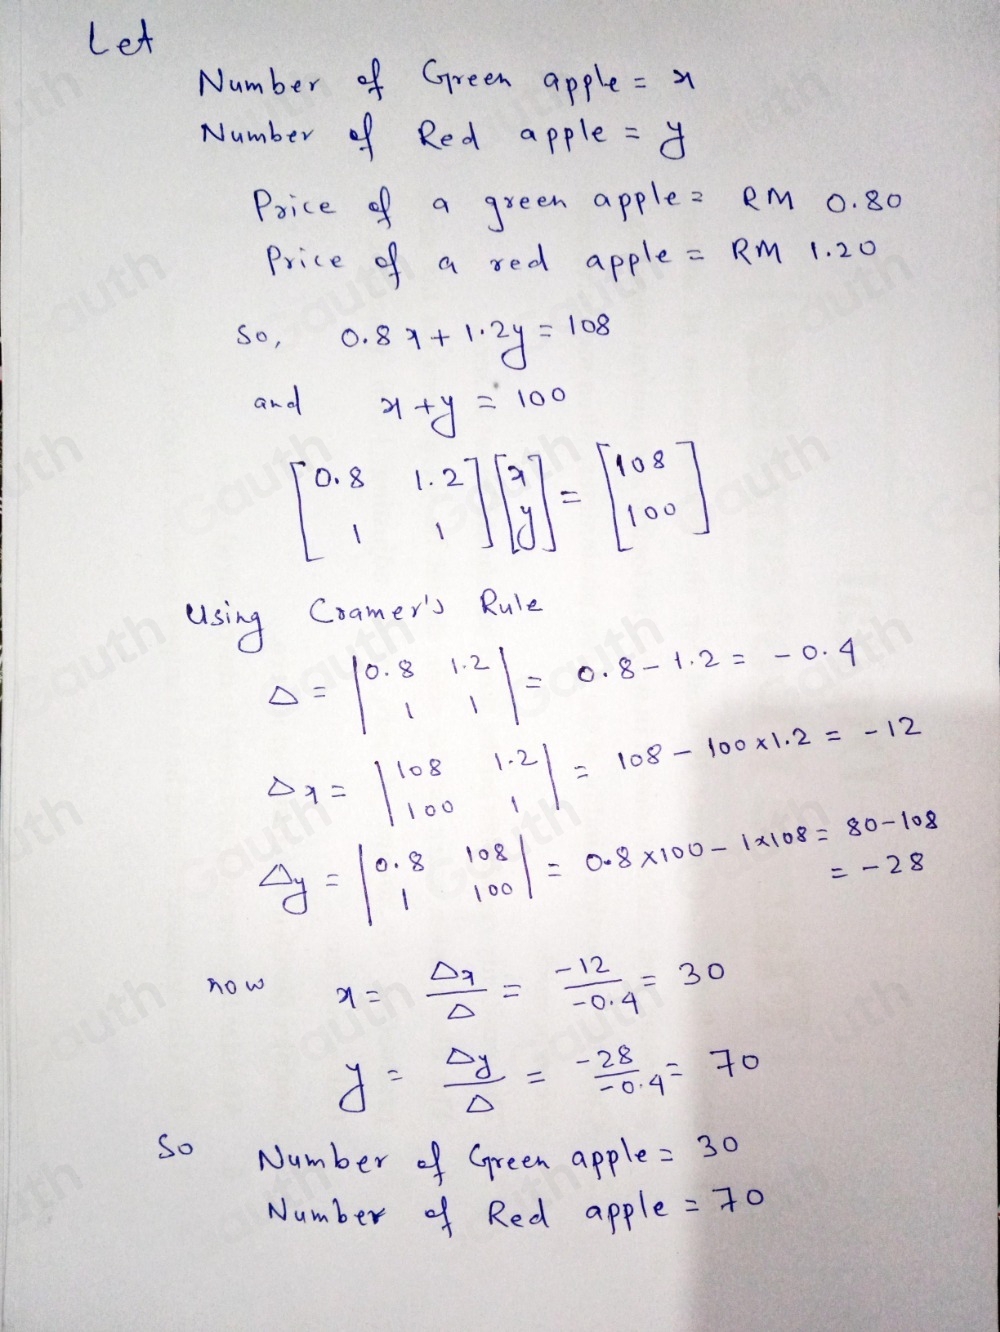 Let
Number of Green apple = x
Number of Red apple = y
Price of a green apple = RM 0.80
Price of a red apple = RM 1.20
So, 0.8x + 1.2y = 108
and x + y = 100
[0.8 1.2] [x] = [108]
[1 1] [y] [100]
Using Cramer's Rule
Δ = |0.8 1.2| = 0.8 - 1.2 = -0.4
|1 1|
Δx = |108 1.2| = 108 - 100 × 1.2 = -12
|100 1|
Δy = |0.8 108| = 0.8 × 100 - 1 × 108 = 80 - 108
|1 100| = -28
now x = Δx/Δ = -12/-0.4 = 30
y = Δy/Δ = -28/-0.4 = 70
So Number of Green apple = 30
Number of Red apple = 70
Gauth